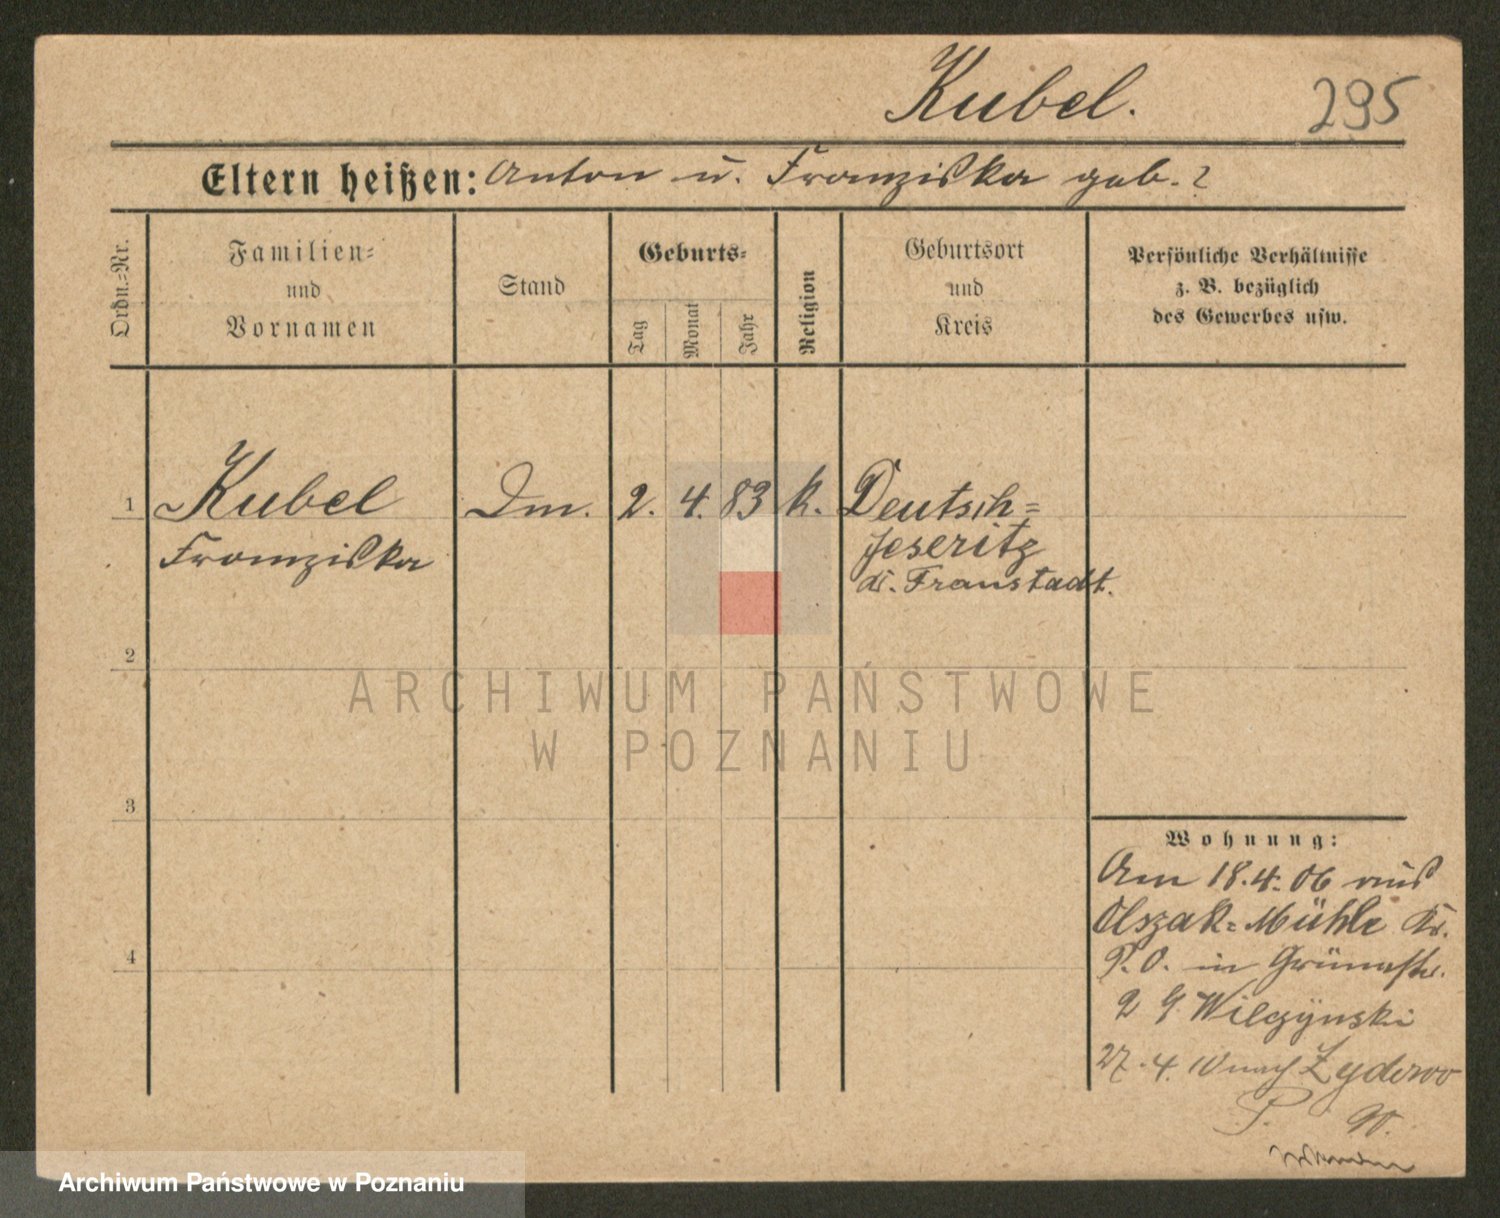 Kubel.
295
Eltern heißen: Anton u. Franziska geb. ?
Ordn.=Nr.
Familien=
und
Vornamen
Stand
Geburts=
Tag
Monat
Jahr
Religion
Geburtsort
und
Kreis
Persönliche Verhältnisse
z. B. bezüglich
des Gewerbes usw.
1
Kubel
Franziska
Dm.
2.
4.
83
k.
Deutsch=
Jeseritz
Kr. Fraustadt.
2
ARCHIWUM PAŃSTWOWE
W POZNANIU
3
4
Wohnung:
Am 18.4.06 aus
Olszak=Mühle Kr.
P. O. in Grünestr.
2 Wilczynski
27.4. nach Zydowo
P.
Archiwum Państwowe w Poznaniu